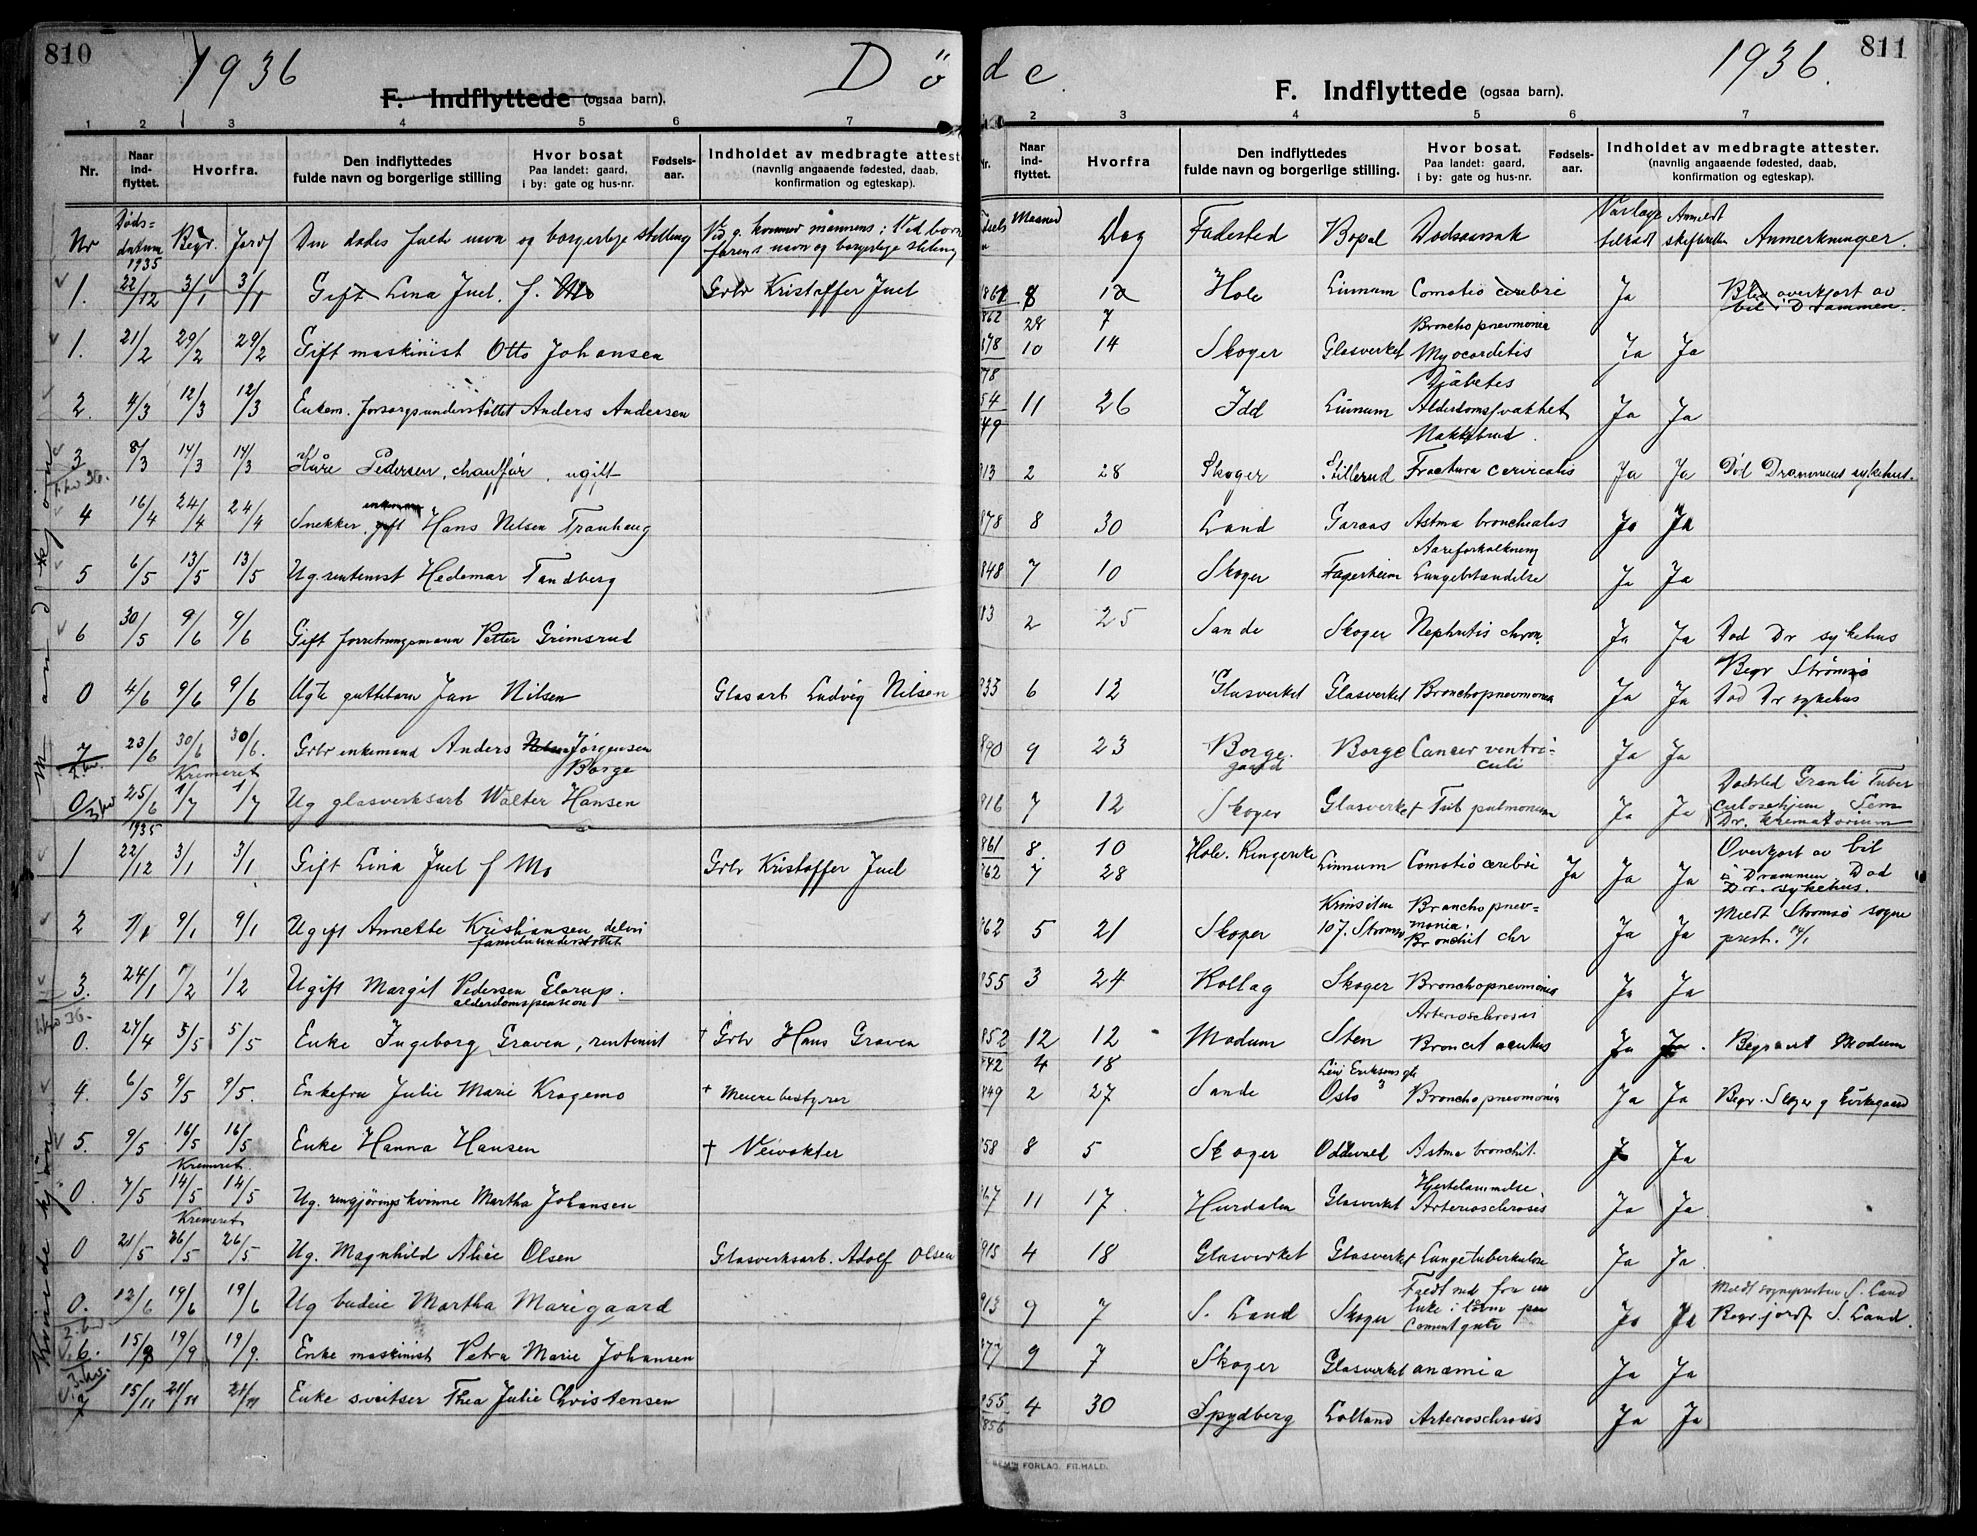 810
1936
Dö
F. Indflyttede (ogsaa barn).
1 2 3 4 5 6 7
Nr. Naar ind-flyttet. Hvorfra. Den indflyttedes fulde navn og borgerlige stilling Hvor bosat Paa landet: gaard, i by: gate og hus-nr. Fødsels-aar. Indholdet av medbragte attester (navnlig angaaende fødested, daab, konfirmation og egteskap).
Nr Døds-datum Begr. Jordf Den dødes fulde navn og borgerlige stilling Ved g. kvinner mannens; Ved barn farens navn og borgerlige stilling
1935
1. 22/12 3/1 3/1 Gift Lina Juel. f. Mo Grbr Kristoffer Juel
1. 21/2 29/2 29/2 Gift maskinist Otto Johansen
2. 4/3 12/3 12/3 Enkem. forsorgsunderstöttet Anders Andersen
3 8/3 14/3 14/3 Kåre Pedersen, chauffør, ugift
1. kv 36.
4 16/4 24/4 24/4 Snekker, gift enkemann Hans Nilsen Tranhaug
5 6/5 13/5 13/5 Ug. rentenist Hedemar Tandberg
6 30/5 9/6 9/6 Gift forretningsmann Petter Grimsrud
0 4/6 9/6 9/6 Ugte guttebarn Jan Nilsen Glasarb Ludvig Nilsen
7 23/6 30/6 30/6. Grbr enkemand Anders Nilsen Jørgensen Borge
2. kv. Kremeret
0 3 kv 25/6 1/7 1/7 Ug glasverksarb Walter Hansen
Mandkjøn
1935
1 22/12 3/1 3/1 Gift Lina Juel f Mo Grbr Kristoffer Juel
2 1/1 9/1 9/1 Ugift Annette Kristiansen, delvi familieunderstöttet
3. 24/1 1/2 1/2 Ugift Margit Pedersen Glorup. alderdomspension
1. kv 36.
0. 27/4 5/5 5/5 Enke Ingeborg Graven, rentenist † Grbr Hans Graven
4. 6/5 9/5 9/5. Enkefru Julie Marie Kragemo † Meieribestyrer
5. 9/5 16/5 16/5 Enke Hanna Hansen † Veivokter
Kremeret.
0. 7/5 14/5 14/5 Ug. rengjøringskvinne Martha Johansen
Kremeret
0 21/5 26/5 26/5 Ug. Magnhild Alice Olsen Glasverksarb. Adolf Olsen
0. 12/6 19/6 19/6 Ug budeie Martha Marigaard
2. kv
6. 15/9 19/9 19/9. Enke maskinist Petra Marie Johansen
3. kv.
7 15/11 21/11 21/11 Enke sveitser Thea Julie Christensen
Kvindekjön
de
1936.
811
F. Indflyttede (ogsaa barn).
2 3 4 5 6 7
Nr. Naar ind-flyttet. Hvorfra Den indflyttedes fulde navn og borgerlige stilling. Hvor bosat. Paa landet: gaard, i by: gate og hus-nr. Fødsels-aar. Indholdet av medbragte attester. (navnlig angaaende fødested, daab, konfirmation og egteskap).
Maaned Dag Fødested Bopel Dødsaarsak Anmeldt skifteretten Anmerkninger.
861 8 10 Hole Linnum Comotio cerebri Ja Blev overkjørt av bil i Drammen.
862 28 7
878 10 14 Skoger Glasverket Bronchopnevmonia Myocarditis Ja Ja
54 11 26 Idd Linnum Diabetes Alderdomssvakhet Ja Ja
49
913 2 28 Skoger Stillerud Nakkebrud. Fractura cervicalis Ja Ja Död Drammens sykehus.
878 8 30 Land Garaas Astma bronchiales Ja Ja
848 7 10 Skoger Fagerheim Aareforkalkning Lungebetændelse Ja Ja
83 2 25 Sande Skoger Nephritis chron. Ja Ja Död Dr sykehus
933 6 12 Glasverket Glasverket Bronchopnevmonia Ja Ja Begr Strømsø Död Dr sykehus
890 9 23 Borge. gaard Borge Cancer ventriculi Ja Ja
916 7 12 Skoger Glasverket Tub pulmonum Ja Ja Dødsted Granli Tuberculosehjem Sem Dr. krematorium
861 8. 10 Hole. Ringerike Linnum Comotio cerebri Ja Ja Ja Overkjørt av bil i Drammen Död Dr. sykehus.
862 7 28
862 5 21 Skoger 107. Strømsø Bronchopnevmonia. Bronchit chr Ja Ja Meldt Strømsø sogneprest. 14/1
855 3 24 Rollag Skoger Bronchopnevmonia Ja Ja
852 12 12 Modum Sten Arteriosclerosis Bronchit acutus Ja Ja. Begravet Modum
842 4 18
849 2 27 Sande Leiv Eriksons gt 3 Oslo Bronchopnevmonia Ja Ja Begr. Skoger g kirkegaard
858 8 5 Skoger Oddevald Astma bronchit. Ja Ja
867 11 17 Hurdalen Glasverket Hjertelammelse Arteriosclerosis Ja Ja
915 4 18 Glasverket Glasverket Lungetuberkulose Ja Ja
913 9 7 S. Land Skoger Faldt ned fra en luke i låven paa Cementgulv Ja Ja Meldt sognepresten S. Land Begr jordf S. Land.
877 9 7 Skoger Glasverket anæmia Ja Ja
855 4 30 Spydberg Lolland Arteriosclerosis Ja Ja
856
FORLAG. FR.HALD.